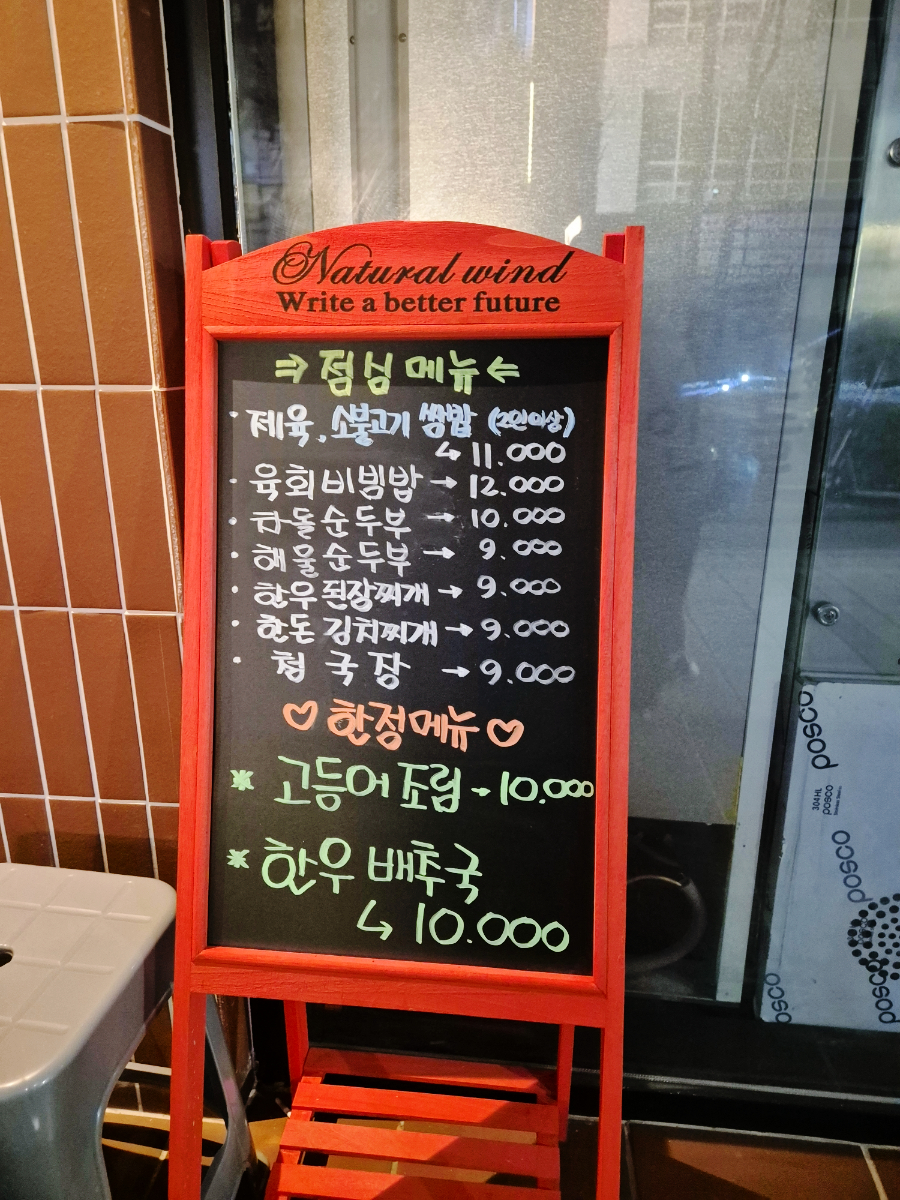 Natural wind
Write a better future
⇒ 점심 메뉴 ⇐
· 제육, 소불고기 쌈밥 (2인이상)
↳ 11.000
· 육회비빔밥 → 12.000
· 차돌순두부 → 10.000
· 해물순두부 → 9.000
· 한우된장찌개 → 9.000
· 한돈 김치찌개 → 9.000
· 청국장 → 9.000
♡ 한정메뉴 ♡
※ 고등어조림 - 10.000
※ 한우 배추국
↳ 10.000
posco
304 HL
posco
posco
posco
posco
posco